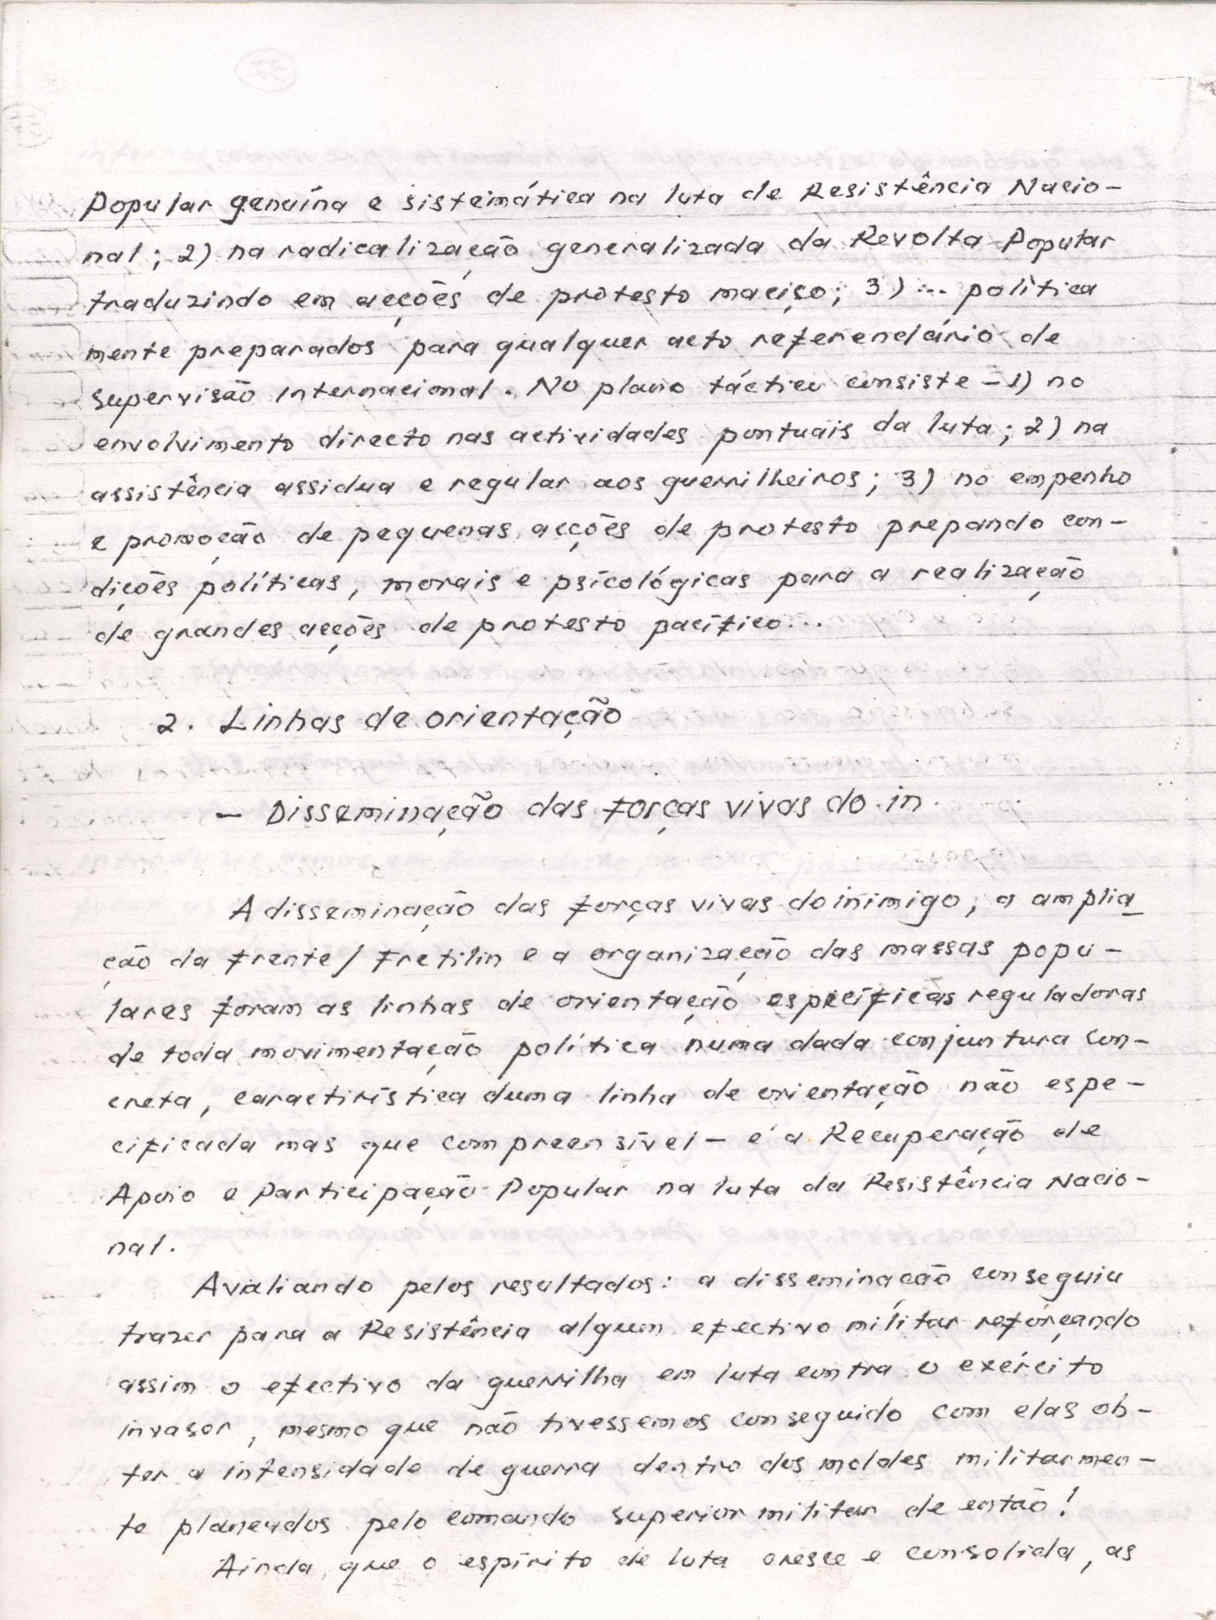 Popular genuína e sistemática na luta de Resistência Nacio-
nal; 2) na radicalização generalizada da Revolta Popular
traduzindo em acções de protesto maciço; 3) ... política
mente preparados para qualquer acto referendário de
supervisão Internacional. No plano táctico consiste - 1) no
envolvimento directo nas actividades pontuais da luta; 2) na
assistência assidua e regular aos guerrilheiros; 3) no empenho
e promoção de pequenas acções de protesto prepando con-
dições políticas, morais e psícológicas para a realização
de grandes acções de protesto pacífico...
2. Linhas de orientação
- Disseminação das forças vivas do in
A disseminação das forças vivas do inimigo, a amplia
ção da Frente/Fretilin e a organização das massas popu-
lares foram as linhas de orientação específicas reguladoras
de toda movimentação política numa dada conjuntura con-
creta, caractirística duma linha de orientação não espe-
cificada mas que compreensível - é a Recuperação de
Apoio e Participação Popular na luta da Resistência Nacio-
nal.
Avaliando pelos resultados: a disseminação conseguiu
trazer para a Resistência algum efectivo mílítar reforçando
assim o efectivo da guerrilha em luta contra o exército
invasor, mesmo que não tivessemos conseguido com elas ob-
ter a intensidade de guerra dentro dos moldes militarmen-
te planeados pelo comando superior militar de então!
Ainda que o espírito de luta cresce e consolida, as